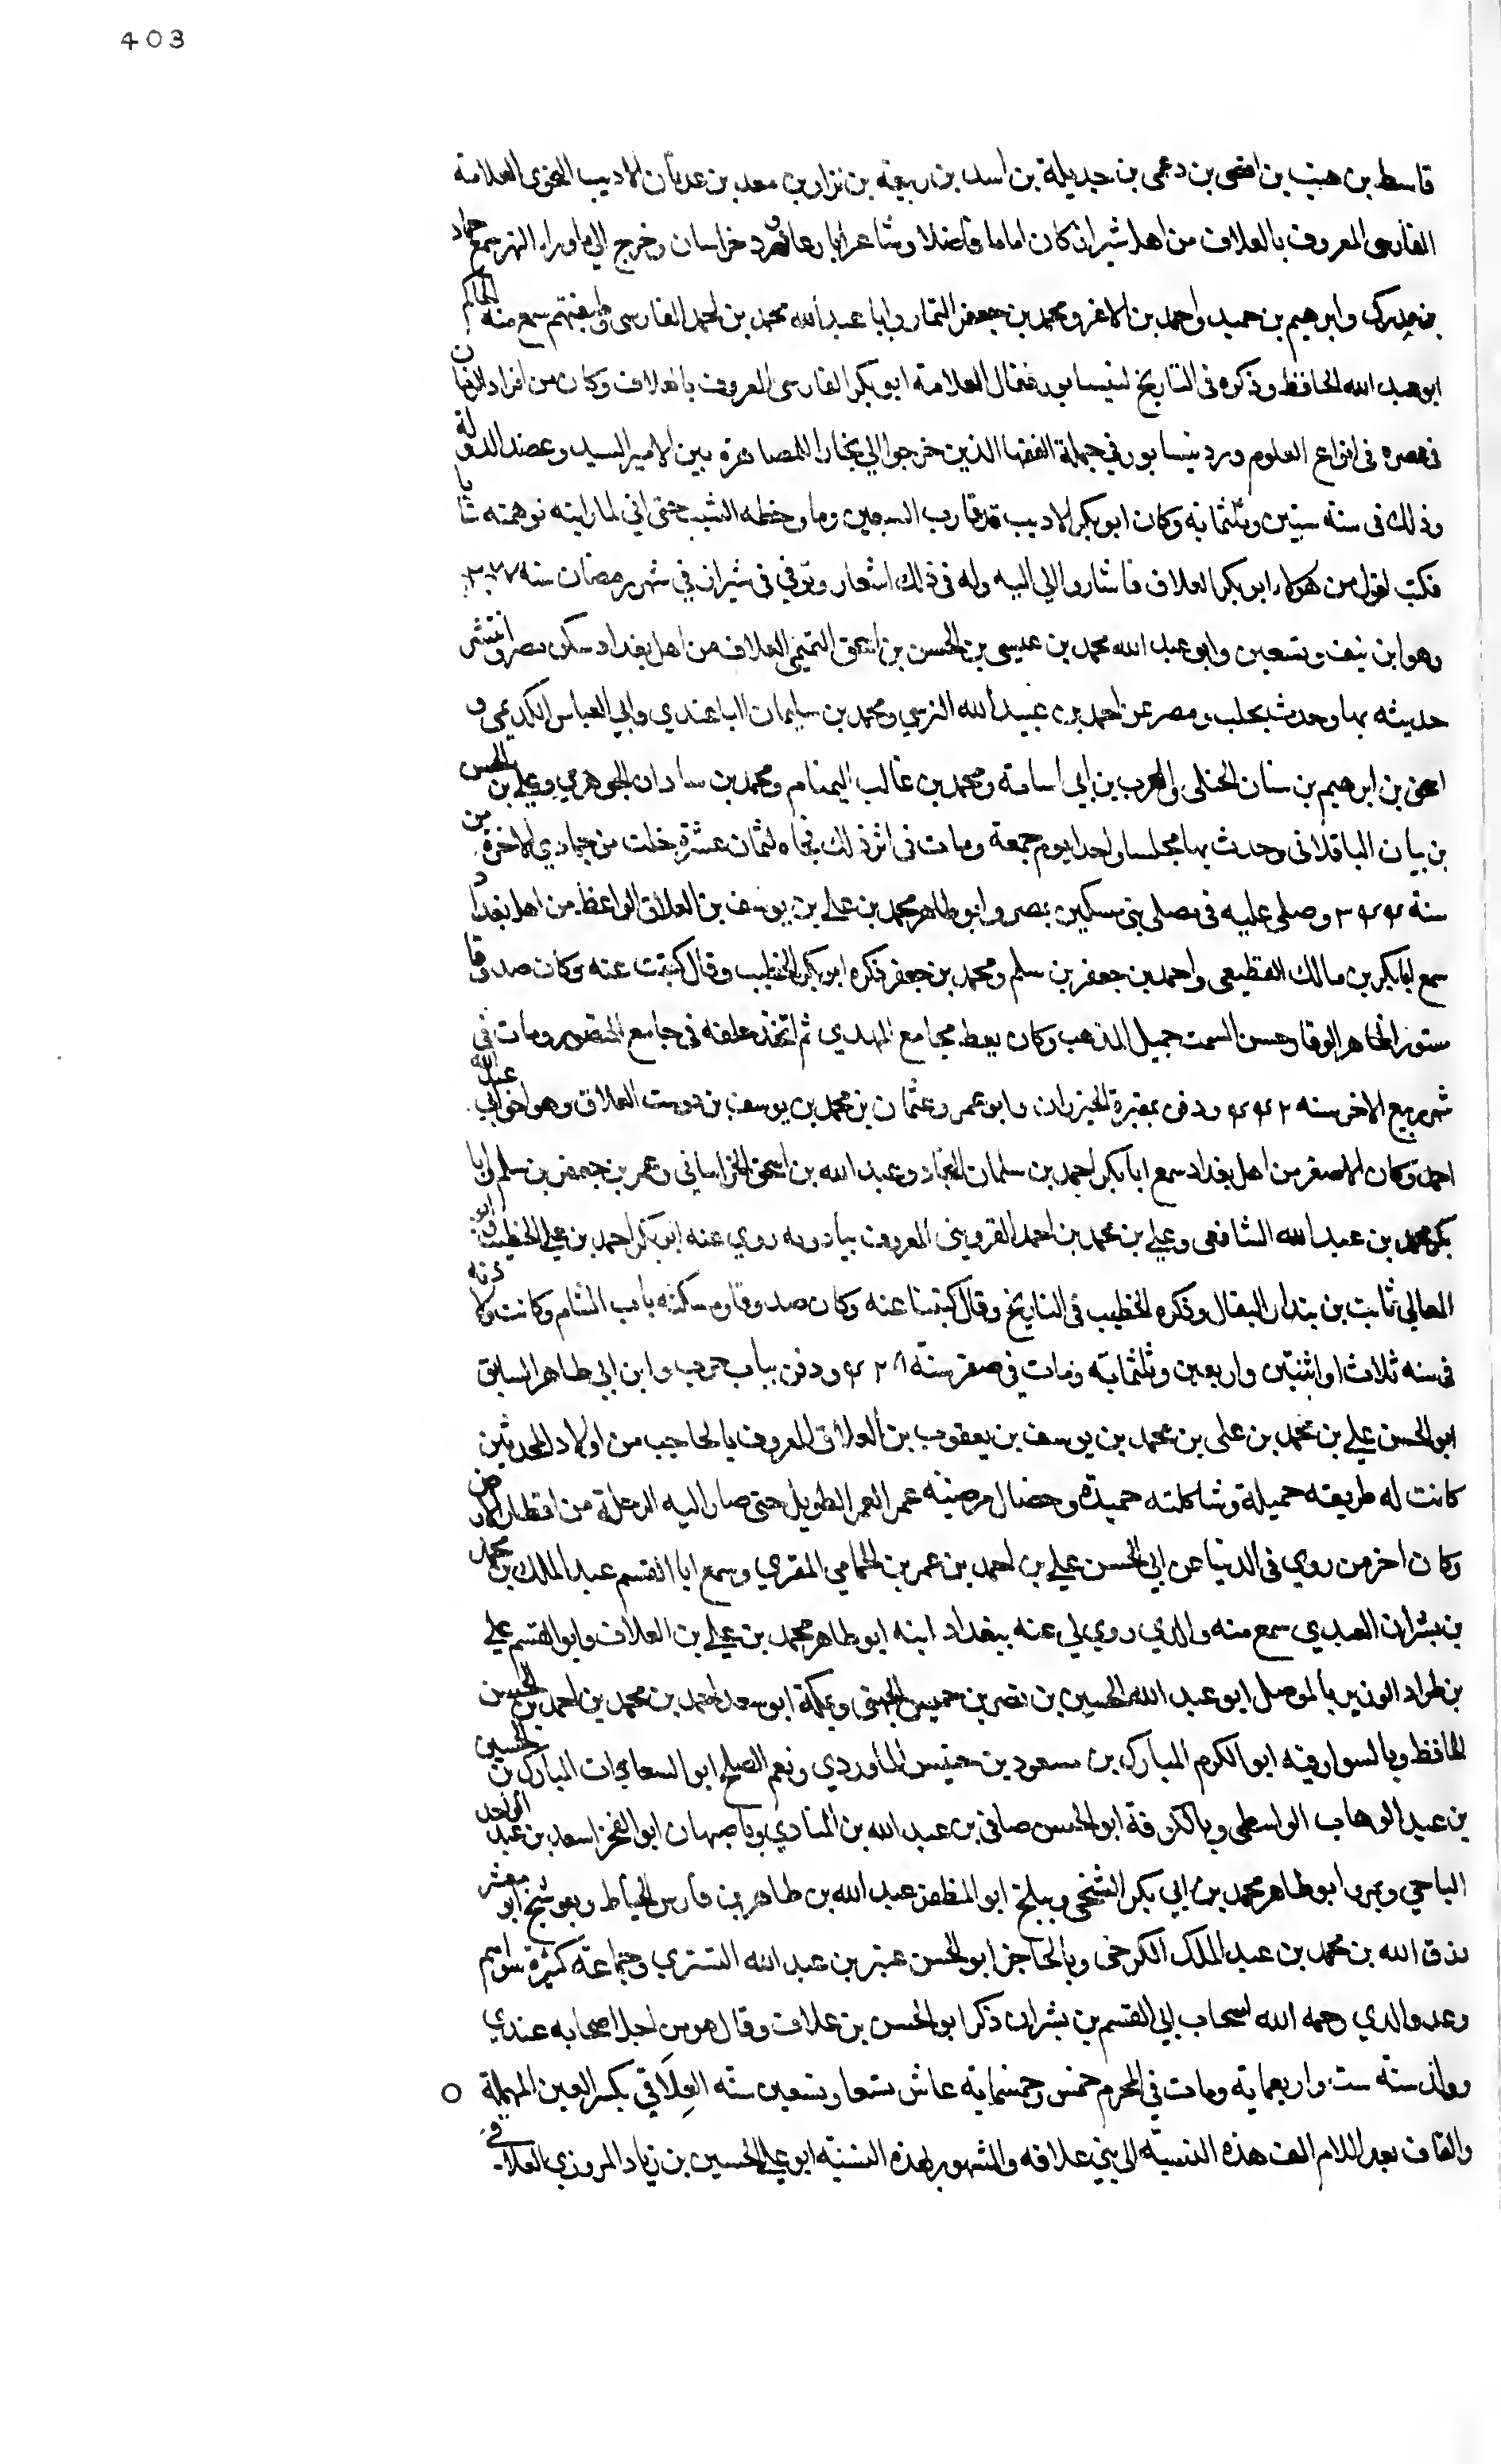 403
قاسط بن هنب بن افصى بن دعمى بن جديلة بن اسد بن ربيعة بن نزار بن معد بن عدنان الاديب النحوى العلامة
الفارسى المعروف بالعلاف من اهل شيراز كان اماما فاضلا وشاعرا بارعا ورد خراسان وخرج الى ما وراء النهر سمع حماد
بن مدرك وابرهيم بن حميد واحمد بن الاغر ومحمد بن جعفر التمار وابا عبد الله محمد بن احمد الفارسى وطبقتهم سمع منه الحاكم
ابو عبد الله الحافظ وذكره فى التاريخ لنيسابور فقال العلامة ابو بكر الفارسى المعروف بالعلاف وكان من افراد الزمان
فى عصره فى انواع العلوم ورد نيسابور فى جملة الفقها الذين خرجوا الي بخارا للمصاهرة بين الامير السيد وعضد الدولة
وذلك فى سنة ستين وثلثمائة وكان ابو بكر الاديب قد قارب التسعين وما وخطه الشيب حتى اني لما رايته توهمته شابا
فكنت اقول من هو ابو بكر العلاف فاشاروا الي اليه وله فى ذلك اشعار وتوفي فى شيراز في شهر رمضان سنه ٣٧٧
وهو ابن نيف وتسعين وابو عبد الله محمد بن عيسى بن الحسن بن اسحق التميمى العلاف من اهل بغداد سكن مصر وانتشر
حديثه بها وحدث بحلب ومصر عن احمد بن عبيد الله النرسي ومحمد بن سليمان الباغندي وابي العباس الكديمى و
اسحق بن ابرهيم بن سنان الختلى والحرث بن ابي اسامة ومحمد بن غالب التمتام ومحمد بن شاذان الجوهري وعلي بن الحسن
بن بيان الباقلانى وحدث بها مجلسا واحدا يوم جمعة ومات فى اثر ذلك فجاه لثمان عشرة خلت من جمادي الاخرة من
سنة ٣٤٤ وصلى عليه فى مصلى بنى مسكين بمصر وابو طاهر محمد بن علي بن يوسف بن العلاف الواعظ من اهل بغداد
سمع ابا بكر بن مالك القطيعى واحمد بن جعفر بن سلم ومحمد بن جعفر ذكره ابو بكر الخطيب وقال كتبت عنه وكان صدوقا
مستورا ظاهر الوقار حسن السمت جميل المذهب وكان يعظ بجامع المهدي ثم اتخذ حلقة فى جامع المنصور ومات فى
شهر ربيع الاخر سنه ٤٤٢ ودفن بمقبرة الخيزران وابو عمرو عثمان بن محمد بن يوسف بن دوست العلاف وهو اخو ابي عبد الله
احمد وكان الاصغر من اهل بغداد سمع ابا بكر احمد بن سلمان النجاد وعبد الله بن اسحق الخراسانى وعمر بن جعفر بن سلم وابا
بكر محمد بن عبد الله الشافعى وعلي بن محمد بن احمد القزويني المعروف ببادويه روي عنه ابو بكر احمد بن علي الخطيب وابو
المعالي ثابت بن بندار البقال وذكره الخطيب فى التاريخ وقال كتبنا عنه وكان صدوقا ومسكنه باب الشام وكانت ولادته
فى سنه ثلاث او اثنتين واربعين وثلثمائة ومات في صفر سنة ٤٢٨ ودفن بباب حرب وابن ابي طاهر السابق
ابو الحسن علي بن محمد بن على بن محمد بن يوسف بن يعقوب بن العلاف المعروف بالحاجب من اولاد المحدثين
كانت له طريقه جميلة وشاكلته حميدة وخصال مرضيّه عمر العمر الطويل حتى صار اليه الرحلة من اقطار الارض
وكان اخر من روي فى الدنيا عن ابي الحسن علي بن احمد بن عمر بن الحمامي المقري وسمع ابا القسم عبد الملك بن محمد
بن بشران العبدي سمع منه والدي روي لي عنه ببغداد ابنه ابو طاهر محمد بن علي بن العلاف وابو القسم علي
بن طراد الوزير بالموصل ابو عبد الله الحسين بن نصر بن خميس الجهنى وبمكة ابو سعد احمد بن محمد بن احمد بن الحسن
الحافظ وبالسوارقية ابو الكرم المبارك بن مسعود بن خميس الماوردي وبفم الصلح ابو السعادات المبارك بن الحسين
بن عبد الوهاب الواسطى وبالكوفة ابو الحسن صافي بن عبد الله بن المنادي وباصبهان ابو الفخر اسعد بن عبد الواحد
الباجي وبمرو ابو طاهر محمد بن ابي بكر الشيخي وببلخ ابو المظفر عبد الله بن طاهر بن فارس الخياط وبفوشنج ابو معشر
رزق الله بن محمد بن عبد الملك الكرخى وبالحاجز ابو الحسن عنبر بن عبد الله التستري وجماعة كثيرة سواهم
وعد والدي رحمه الله اصحاب ابي القسم بن بشران ذكر ابو الحسن بن علاف وقال هو من اجل اصحابه عندي
وولد سنة ست واربعماية ومات في المحرم خمس وخمسماية عاش تسعا وتسعين سنه العِلاقي بكسر العين المهملة
والقاف بعد اللام الف هذه النسبة الى بني علاقه والمشهور بهذه النسبة ابو علي الحسين بن زياد المروزي العلاقي